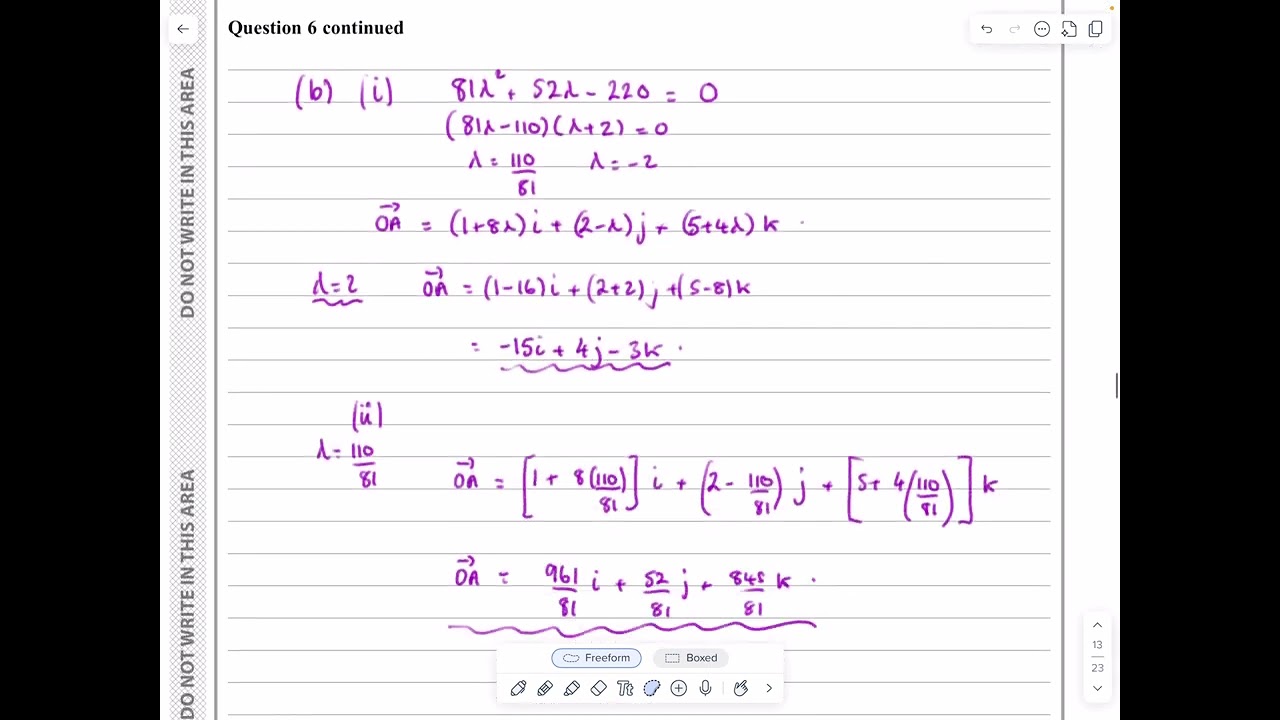 Question 6 continued
(b) (i) 81λ² + 52λ - 220 = 0
(81λ-110)(λ+2) = 0
λ = 110/81 λ = -2
OA = (1+8λ)i + (2-λ)j + (5+4λ)k
λ=2 OA = (1-16)i + (2+2)j + (5-8)k
= -15i + 4j - 3k.
(ii)
λ = 110/81
OA = [1 + 8(110/81)] i + (2 - 110/81) j + [5+ 4(110/81)] k
OA = 961/81 i + 52/81 j + 845/81 k.
DO NOT WRITE IN THIS AREA
DO NOT WRITE IN THIS AREA
13
23
Freeform Boxed
Tt